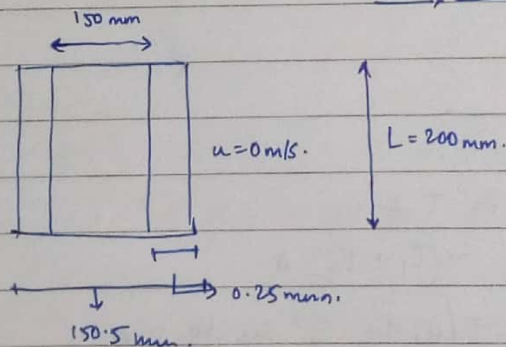 150 mm
u=0m/s.
L = 200mm.
0.25mm.
150.5 mm.